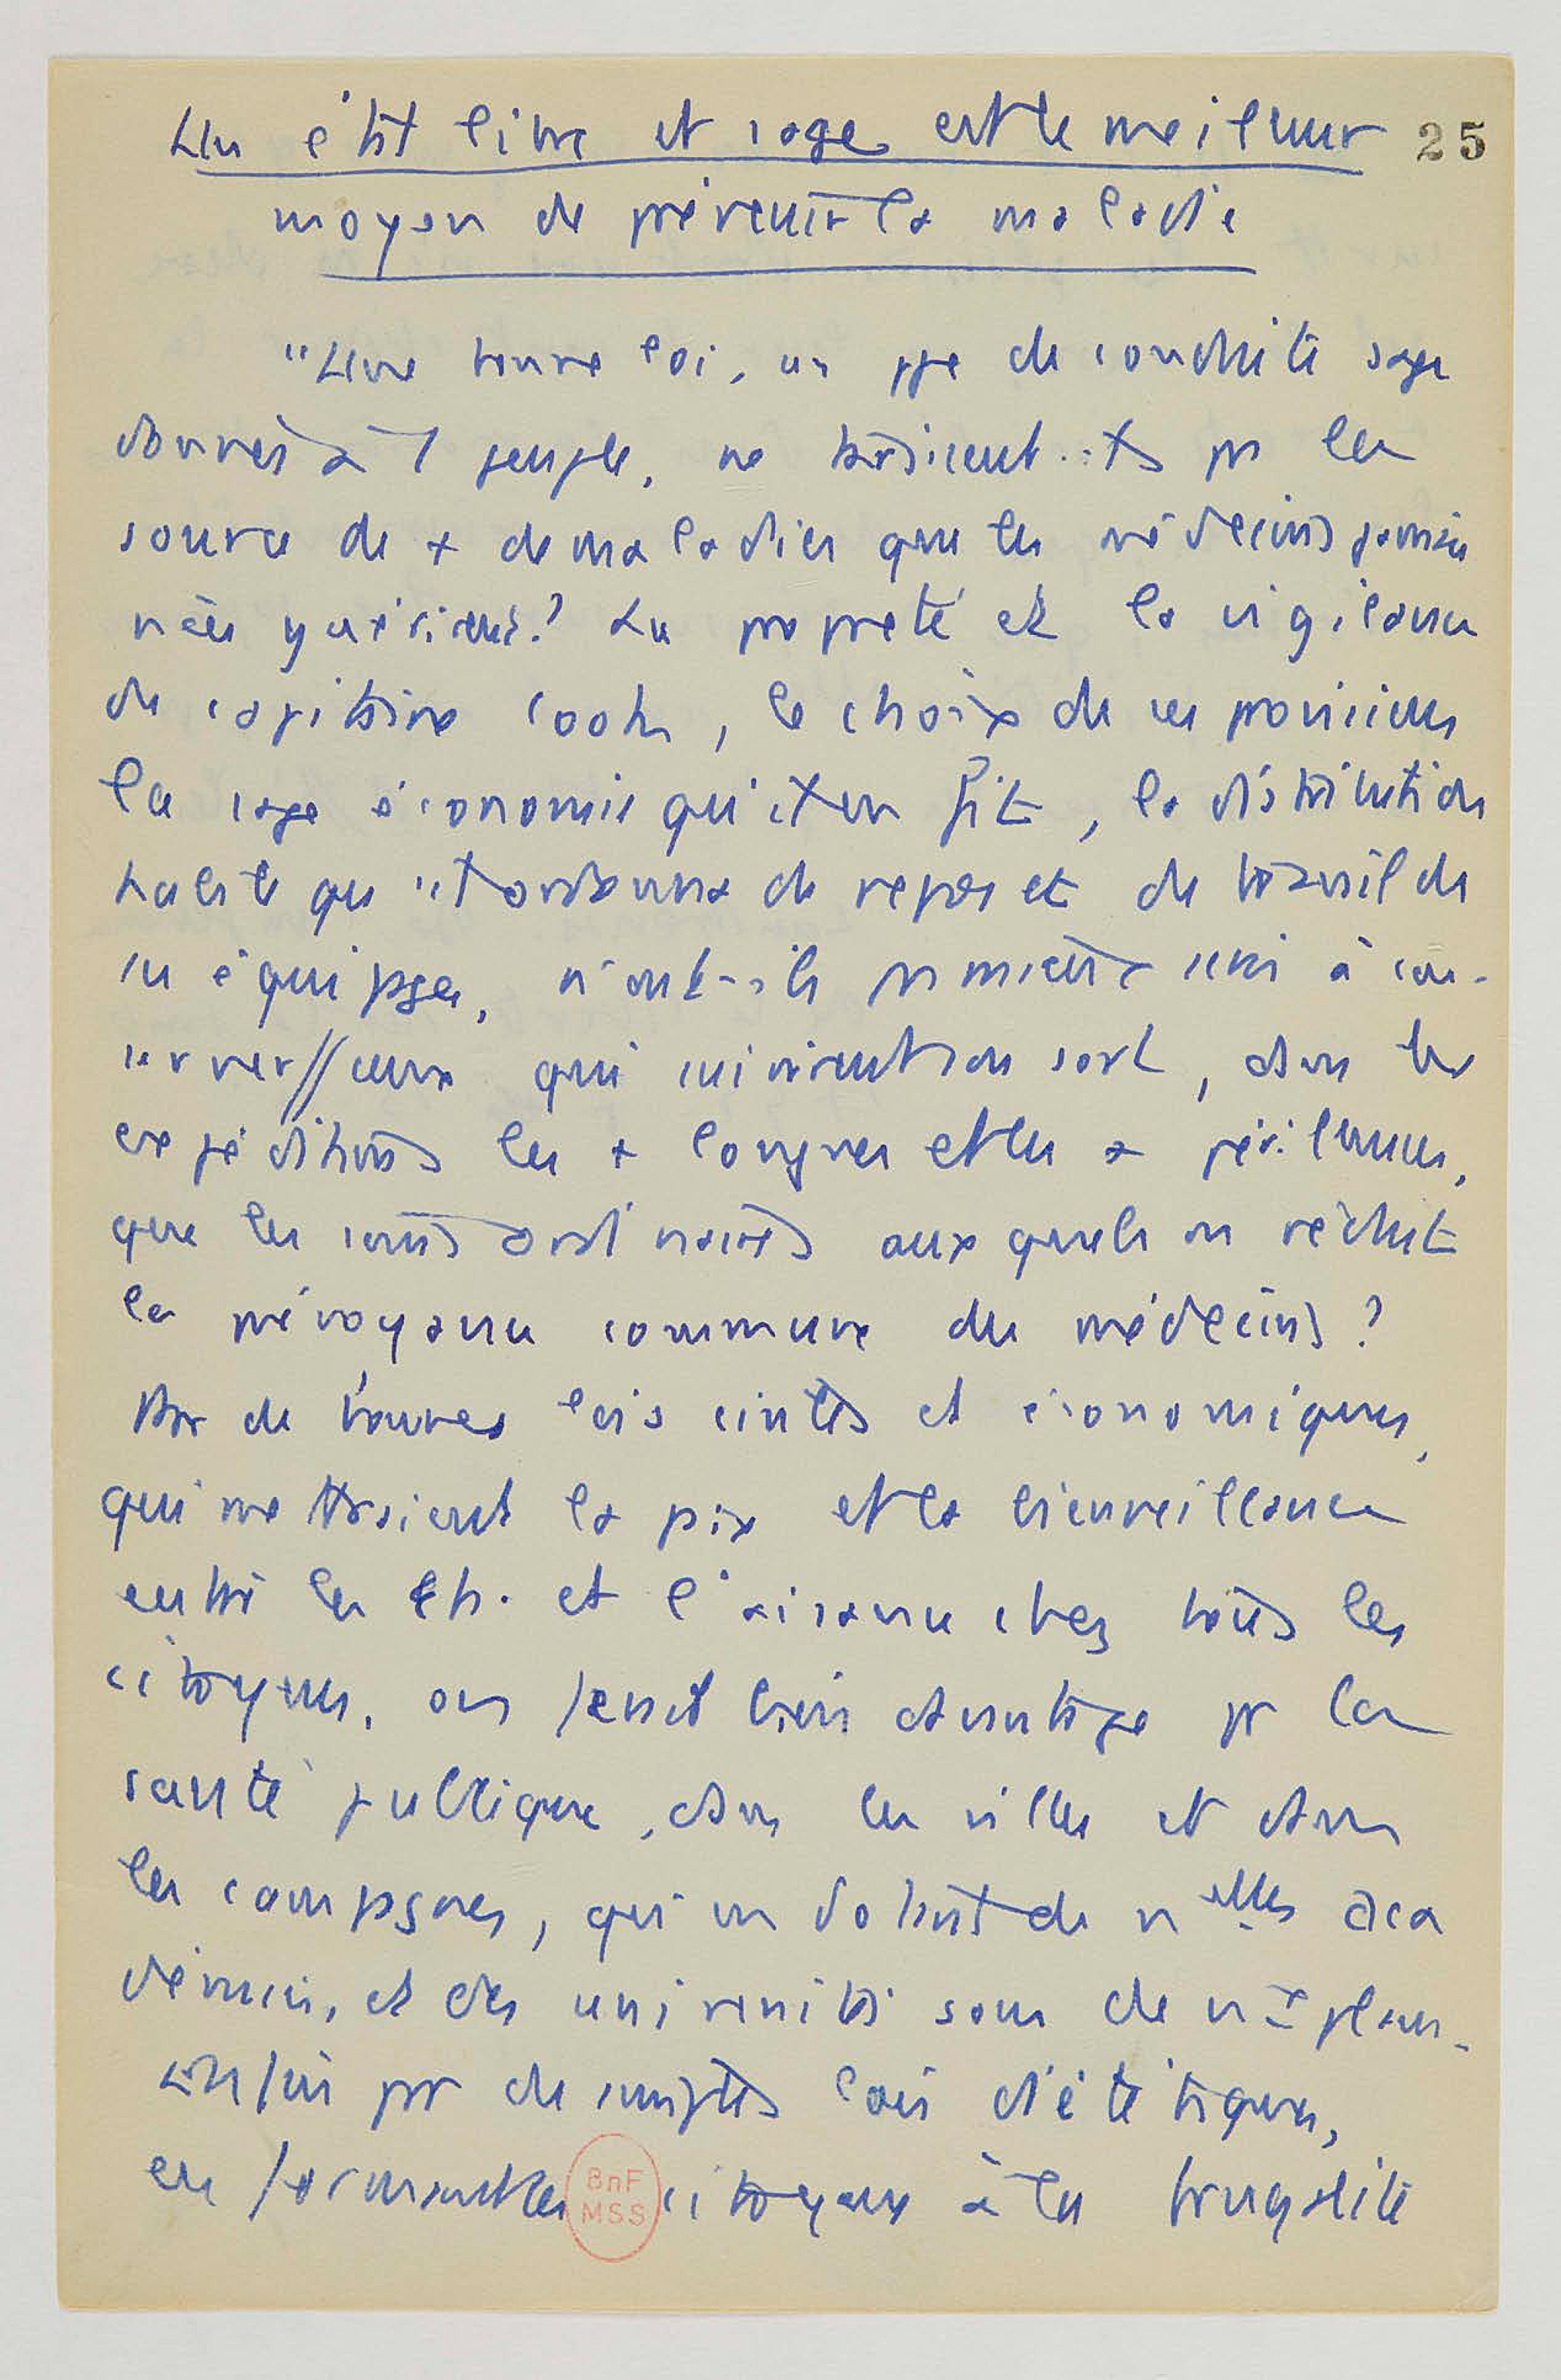 Un état libre et sage est le meilleur
25
moyen de prévenir la maladie
"Une bonne loi, un pge de conduite sage
donnés à 1 peuple, ne tariraient-ils pr la
source de + de maladies que les médecins jamais
n'en guériront? La propreté et la vigilance
du capitaine Cook, le choix de ses provisions
la sage économie qu'il en fit, la distribution
habile qu'il ordonna de repos et de travail de
ses équipages, n'ont-ils pr mieux servi à con-
server // ceux qui suivirent son sort, dans les
expéditions les + longues et les + périlleuses,
que les soins ordinaires auxquels on réduit
la prévoyance commune des médecins?
Par de bonnes lois civiles et économiques,
qui mettraient la paix et la bienveillance
entre les h. et l'aisance chez tous les
citoyens, on ferait bien davantage pr la
santé publique, dans les villes et dans
les campagnes, qu'en dotant de nelles aca
démies, et des universités sous de nx plans.
Enfin par de simples lois diététiques,
en formant les citoyens à la frugalité
BnF
MSS